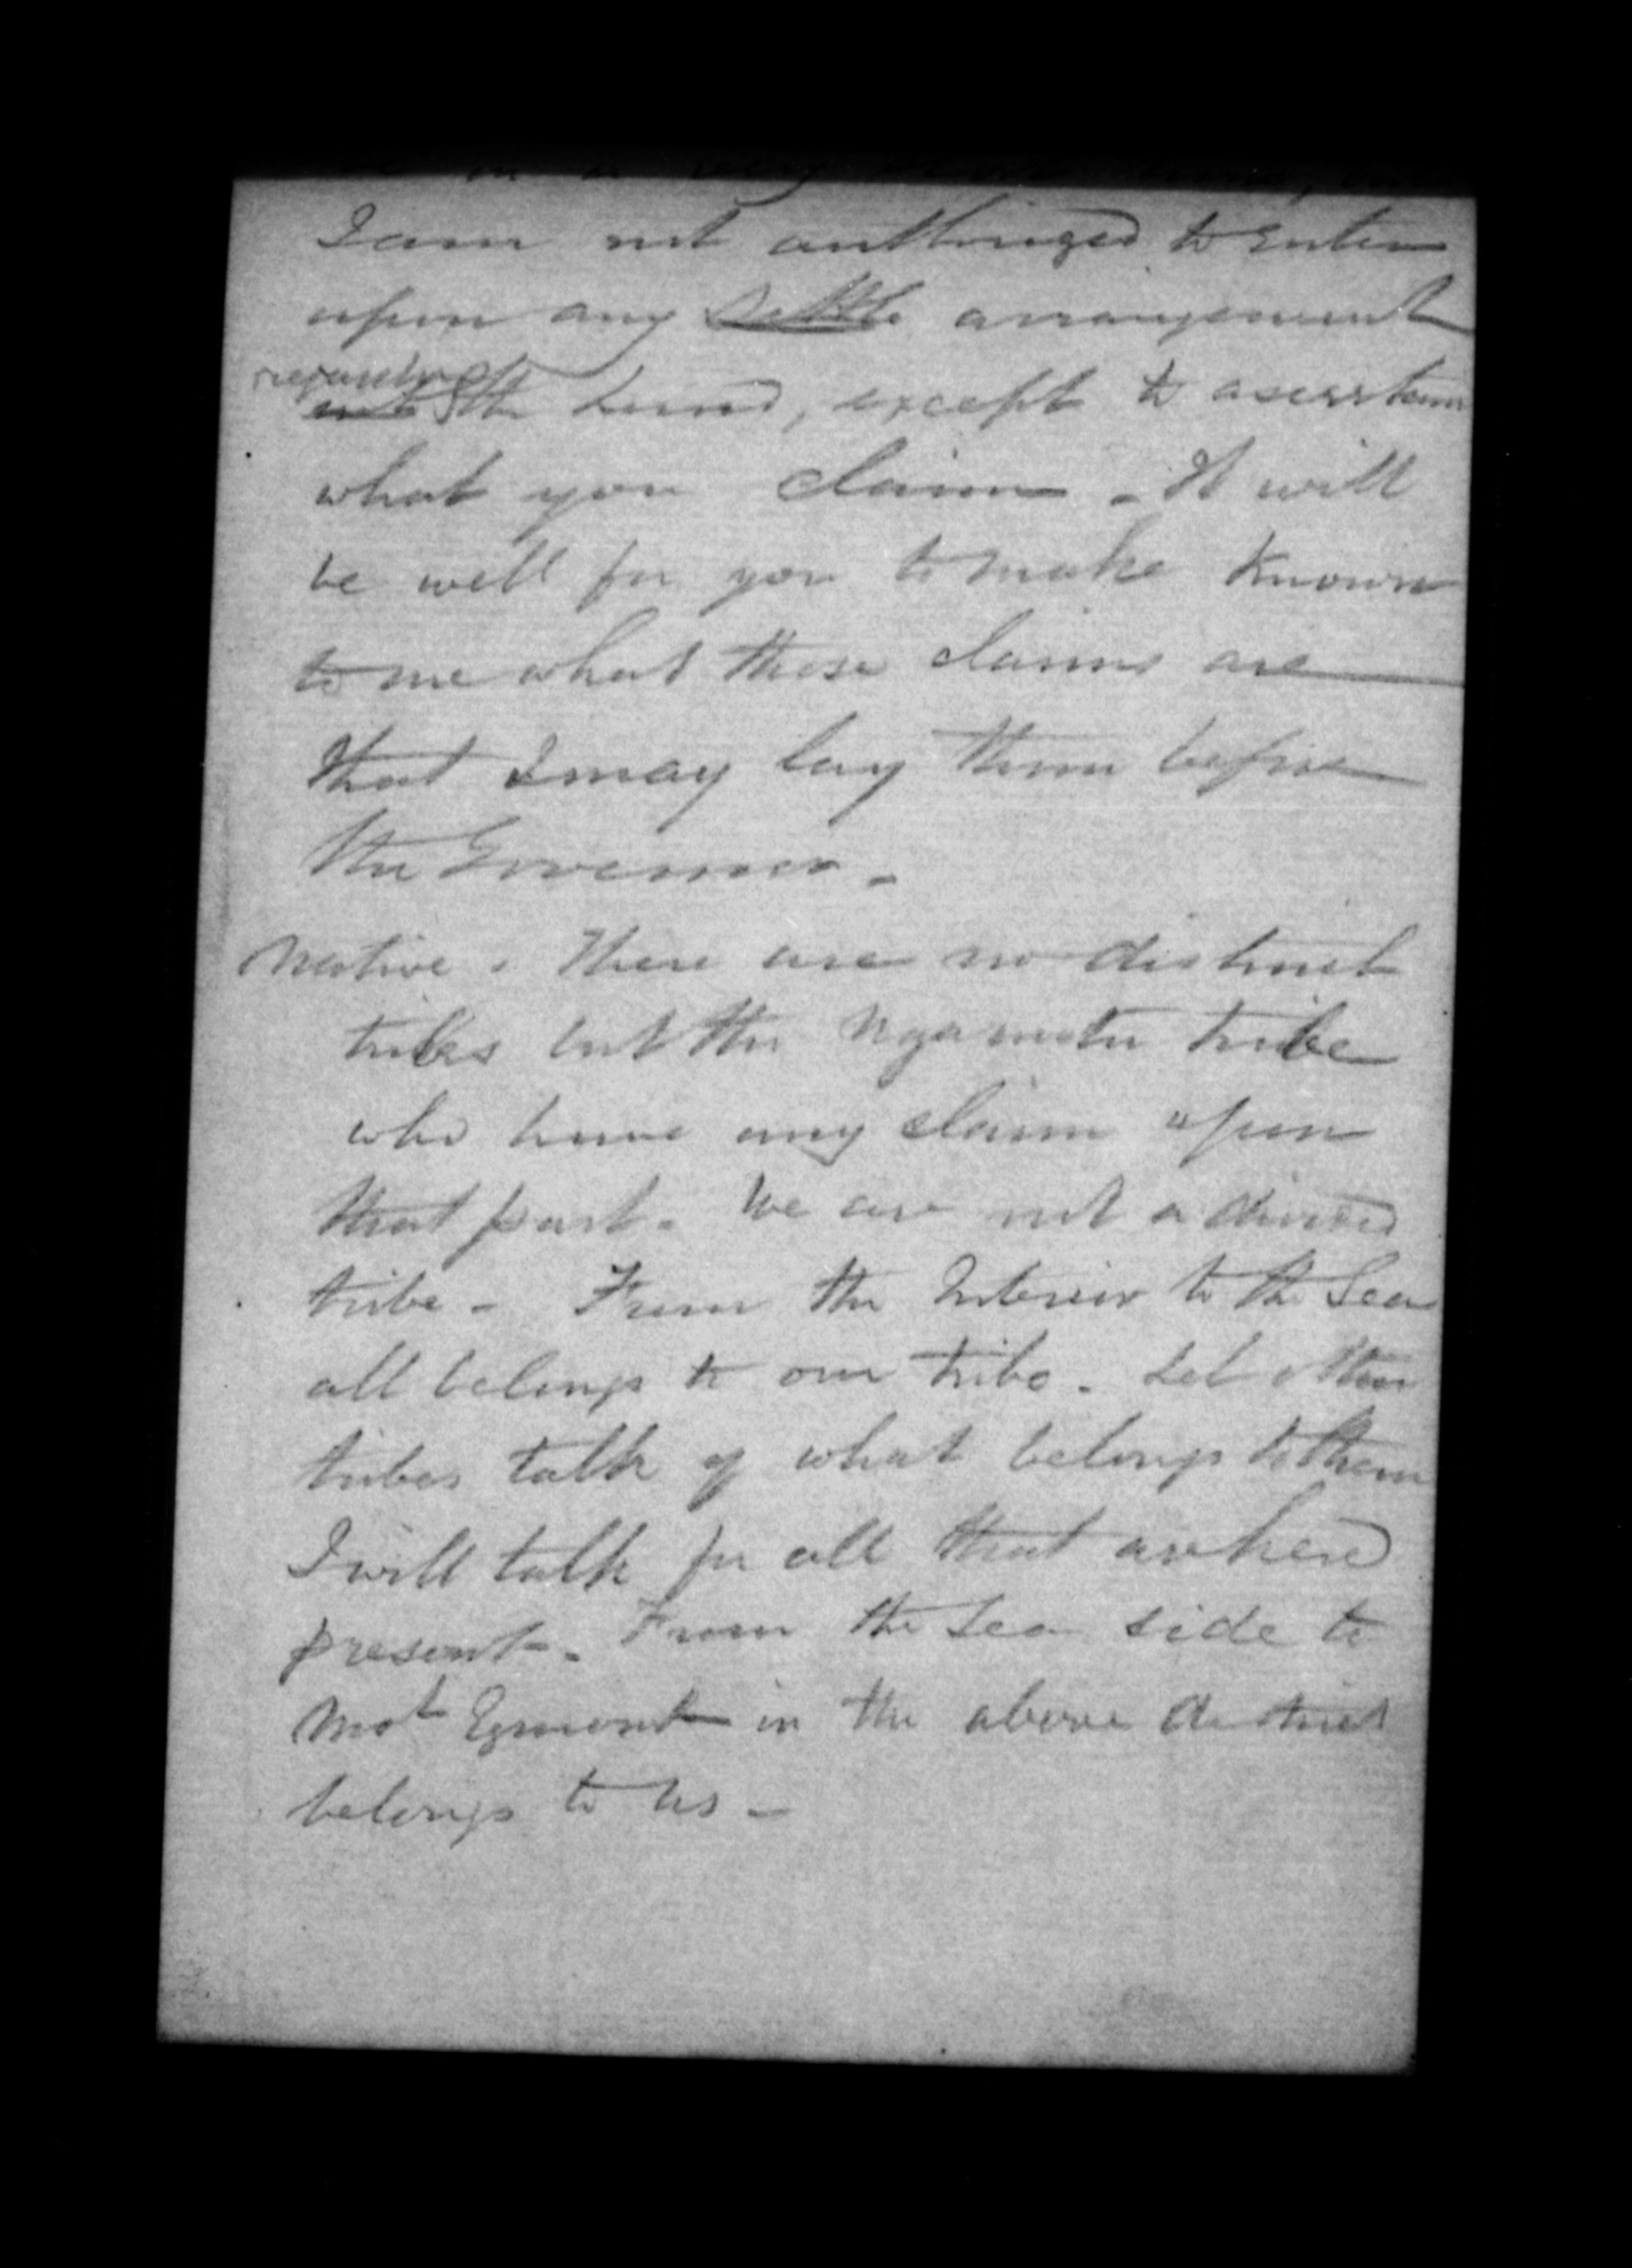 I am not authorized to enter
upon any settle arrangement
regarding
the land, except to ascertain
what you claim - It will
be well for you to make known
to me what those claims are
that I may lay them before
the Governor -
Native. There are no distinct
tribes but the Ngamotu tribe
who have any claim upon
that part. We are not a divided
tribe - From the Interior to the Sea
all belongs to our tribe. Let other
tribes talk of what belongs to them
I will talk for all that are here
present - From the Sea side to
Mot Egmont in the above district
belongs to us -